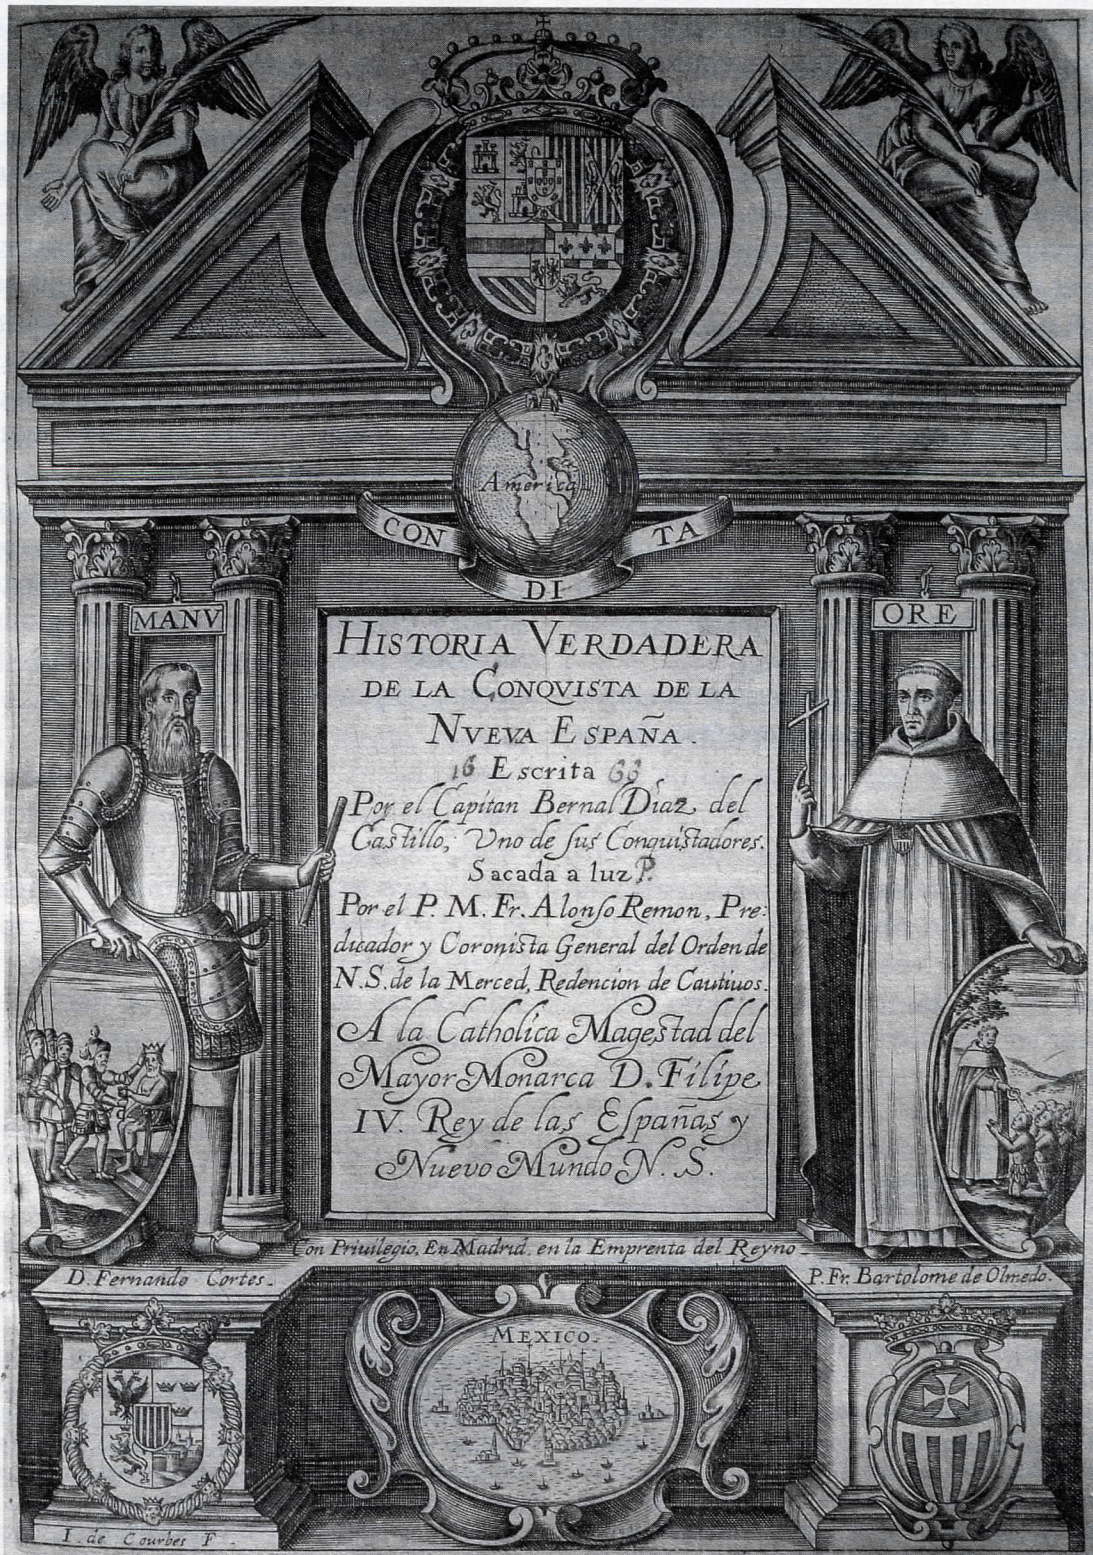 America
CON
DI
TA
MANV
ORE
HISTORIA VERDADERA
DE LA CONQVISTA DE LA
NVEVA ESPAÑA.
16 Escrita 33
Por el Capitan Bernal Diaz, del
Castillo, Vno de sus Conquistadores.
Sacada a luz P.
Por el P. M. Fr. Alonso Remon, Pre:
dicador y Coronista General del Orden de
N. S. de la Merced, Redencion de Cautiuos.
A la Catholica Magestad del
Mayor Monarca D. Filipe
IV. Rey de las Españas y
Nuevo Mundo N. S.
Con Priuilegio, En Madrid, en la Emprenta del Reyno
D. Fernando Cortes.
P. Fr. Bartolome de Olmedo.
MEXICO.
I. de Courbes F.